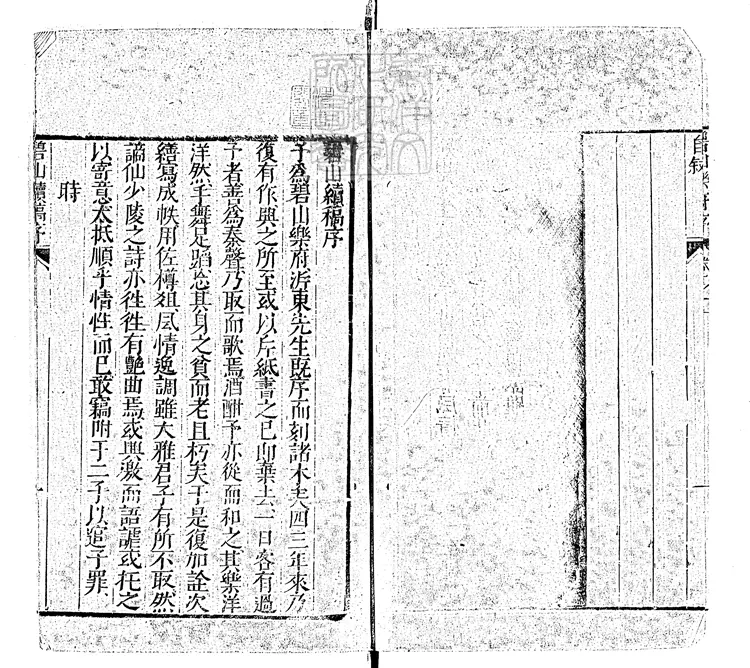 自敍
碧山續稿序
予爲碧山樂府浒東先生既序而刻諸木矣四三年來乃
復有作興之所至或以片紙書之已卽棄去一日客有過
予者善爲秦聲乃取而歌焉酒酣予亦從而和之其樂洋
洋然手舞足蹈忘其身之貧而老且朽矣于是復加詮次
繕寫成帙用佐樽俎風情逸調雖大雅君子有所不取然
謫仙少陵之詩亦徃徃有豔曲焉或興激而語謔或托之
以寄意大抵順乎情性而已敢竊附于二子以逭予罪
時
碧山續稿序